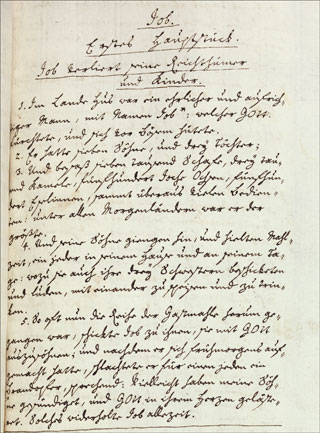 Job.
Erstes Hauptstück.
Job verliert seine Reichthümer
und Kinder.
1. Im Lande Hus war ein ehrlicher und aufrich-
tiger Mann, mit Namen Job *: welcher GOtt
fürchtete, und sich vor Bösem hütete.
2. Er hatte sieben Söhne, und drey Töchter;
3. Und besaß sieben tausend Schafe, drey tau-
send Kamele, fünfhundert Joche Ochsen, fünfhun-
dert Eselinnen, sammt überaus vielen Bedien-
ten: unter allen Morgenländern war er der
größte.
4. Und seine Söhne giengen hin, und hielten Mahl-
zeit, ein jeder in seinem Hause und an seinem Ta-
ge, wozu sie auch ihre drey Schwestern beschickten
und luden, mit einander zu speisen und zu trin-
ken.
5. So oft nun die Reihe der Gastmahle herum ge-
gangen war, schickte Job zu ihnen, sie mit GOtt
auszusöhnen; und nachdem er sich frühmorgens auf-
gemacht hatte, schlachtete er für einen jeden ein
Brandopfer, sprechend: Vielleicht haben meine Söh-
ne gesündiget, und GOtt in ihrem Herzen geläste-
ret. Solches widerholte Job allezeit.